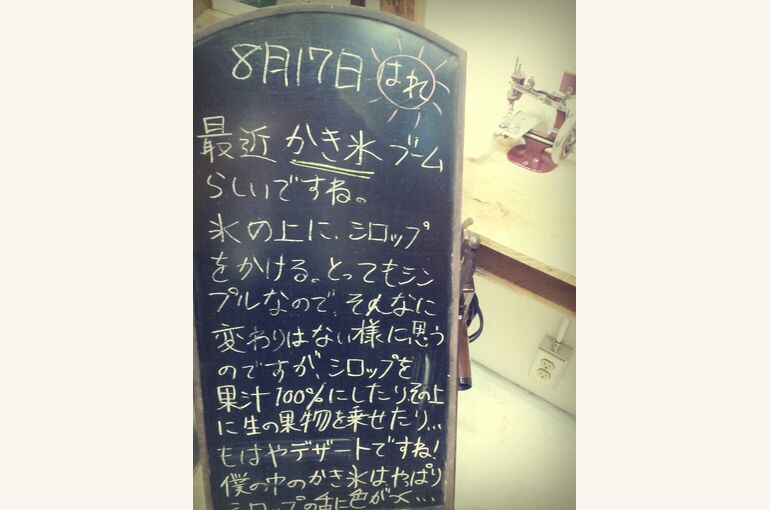 8月17日 はれ
最近 かき氷 ブーム
らしいですね。
氷の上に、シロップ
をかける。とってもシン
プルなので、そんなに
変わりはない様に思う
のですが、シロップを
果汁100%にしたりその上
に生の果物を乗せたり...
もはやデザートですね!
僕の中のかき氷はやっぱり
シロップの舌に色がつく...